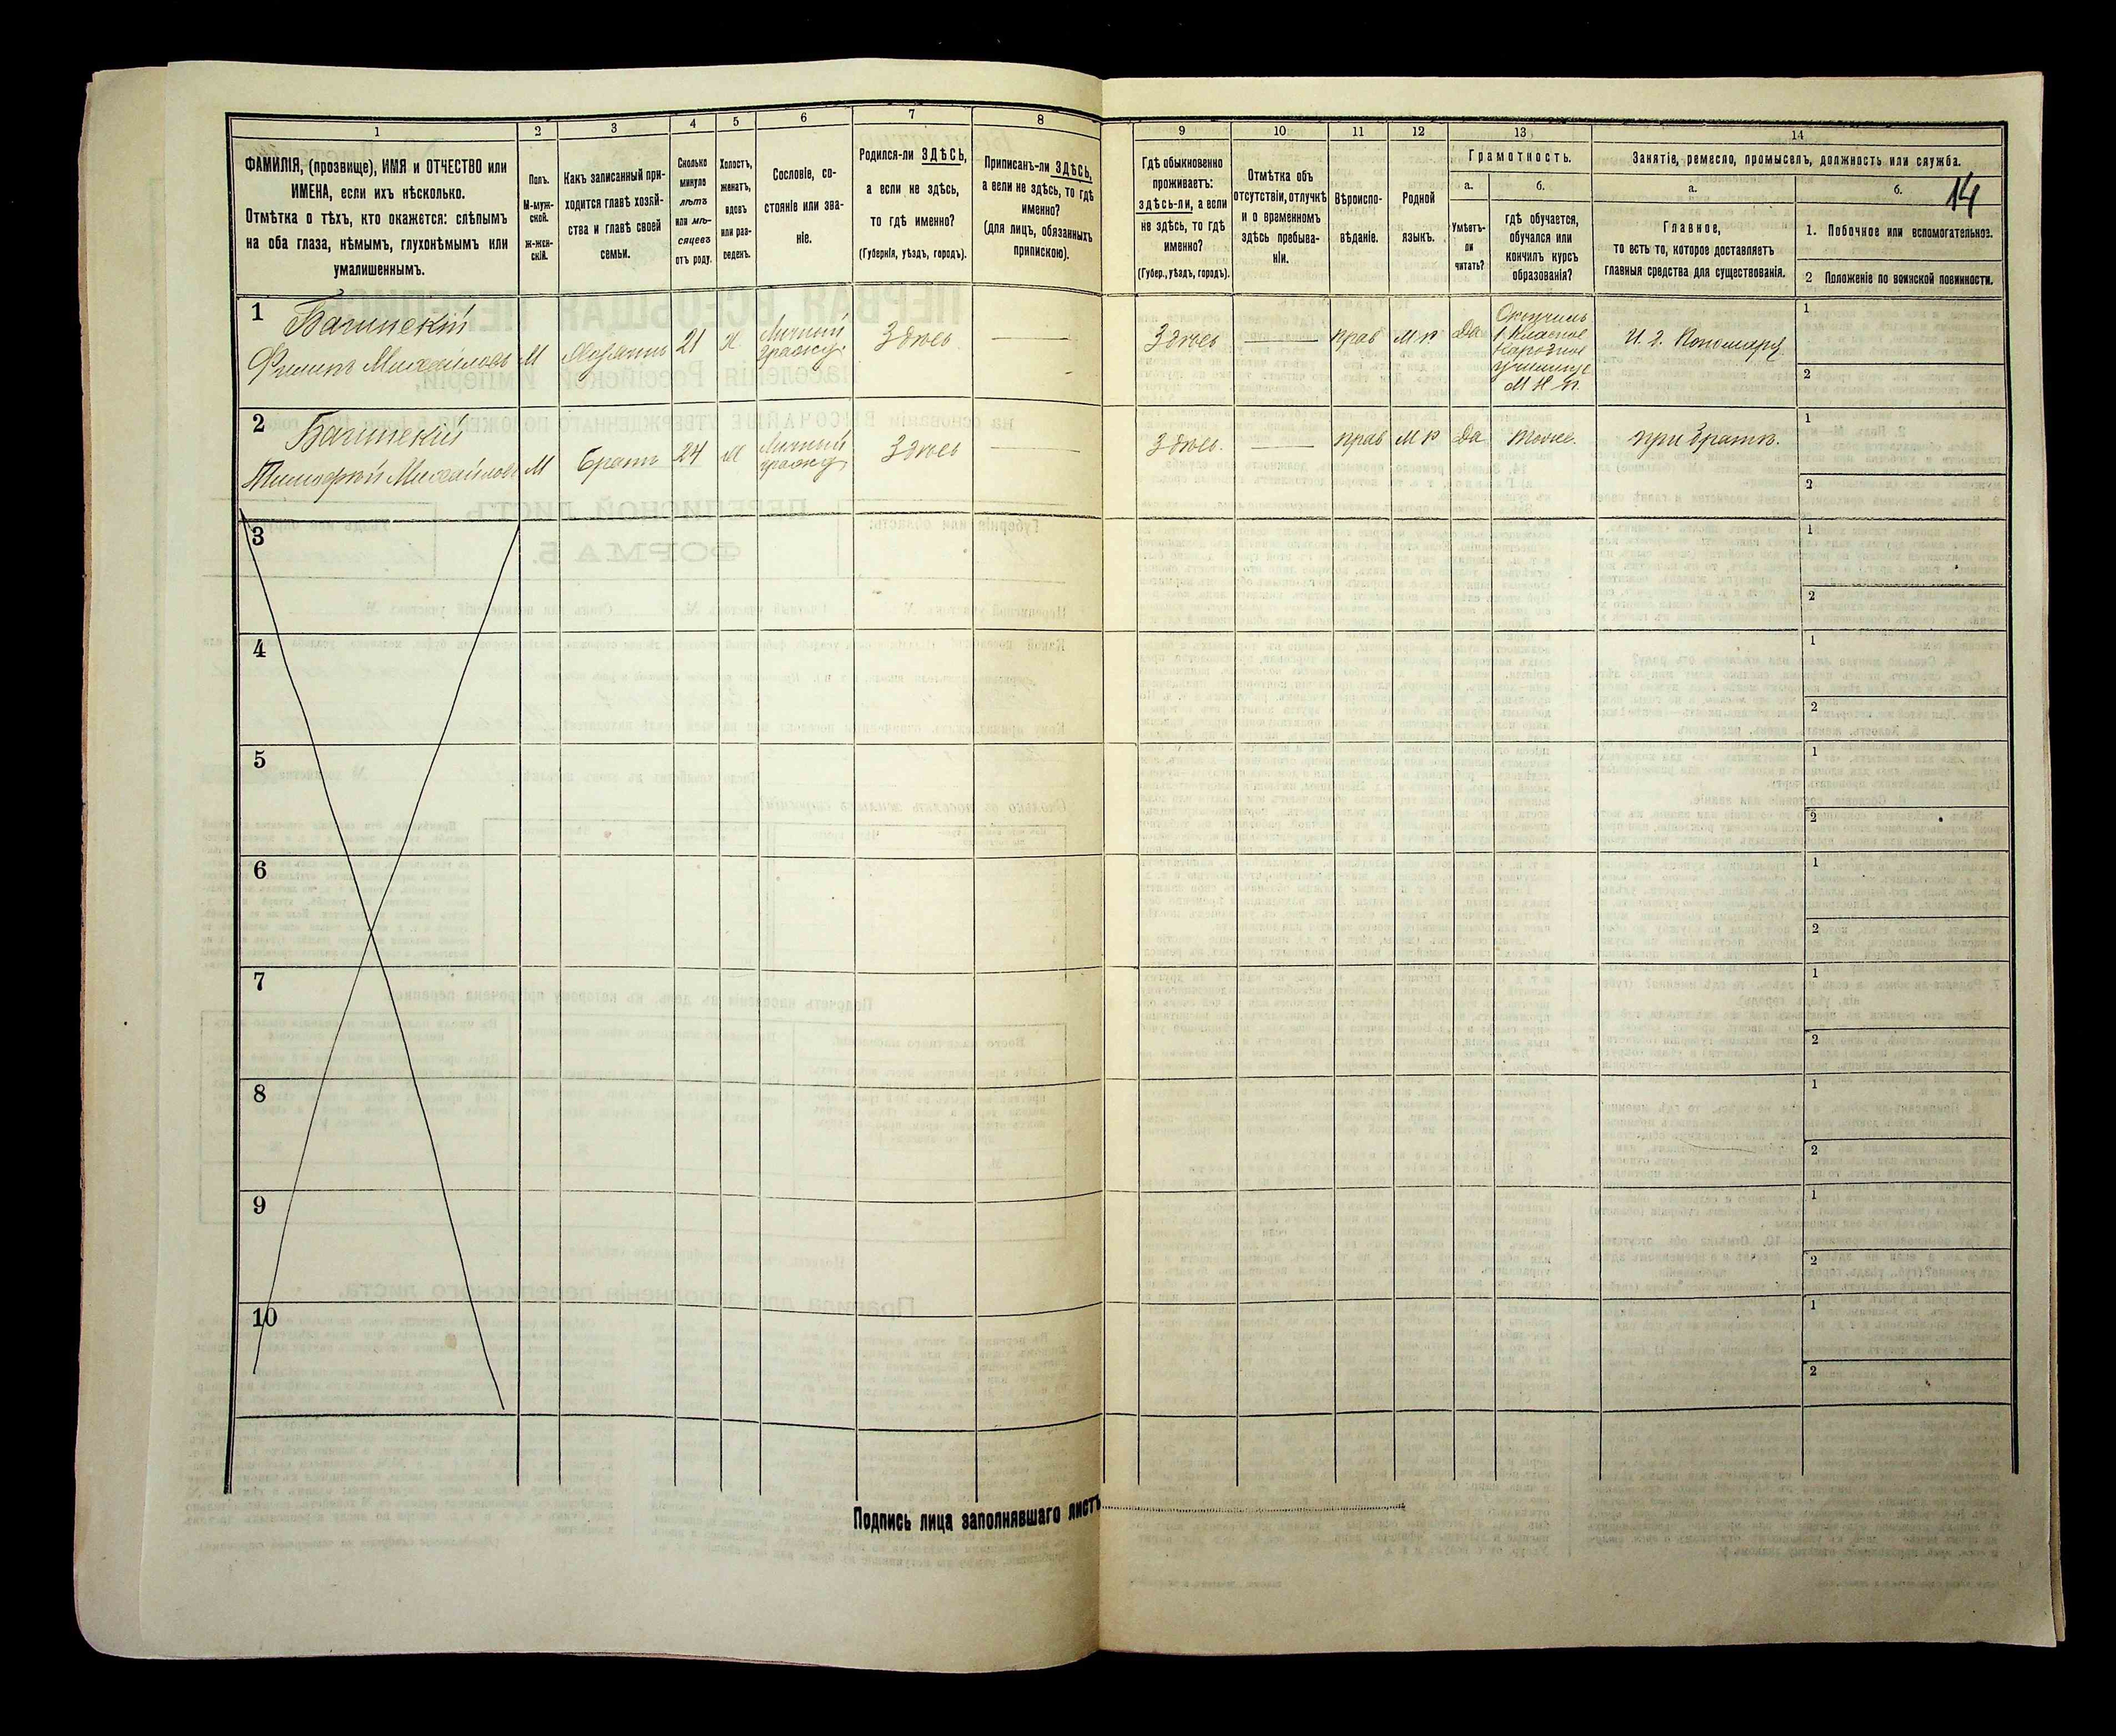 1
2
3
4
5
6
7
8
9
10
11
12
13
14
ФАМИЛІЯ, (прозвище), ИМЯ и ОТЧЕСТВО или
ИМЕНА, если ихъ нѣсколько.
Отмѣтка о тѣхъ, кто окажется: слѣпымъ
на оба глаза, нѣмымъ, глухонѣмымъ или
умалишеннымъ.
Полъ.
М-муж-
ской.
ж-жен-
скій.
Какъ записанный при-
ходится главѣ хозяй-
ства и главѣ своей
семьи.
Сколько
минуло
лѣтъ
или мѣ-
сяцевъ
отъ роду.
Холостъ,
женатъ,
вдовъ
или раз-
веденъ.
Сословіе, со-
стояніе или зва-
ніе.
Родился-ли ЗДѢСЬ,
а если не здѣсь,
то гдѣ именно?
(Губернія, уѣздъ, городъ).
Приписанъ-ли ЗДѢСЬ,
а если не здѣсь, то гдѣ
именно?
(для лицъ, обязанныхъ
припискою).
Гдѣ обыкновенно
проживаетъ:
здѣсь-ли, а если
не здѣсь, то гдѣ
именно?
(Губер., уѣздъ, городъ).
Отмѣтка объ
отсутствіи, отлучкѣ
и о временномъ
здѣсь пребыва-
ніи.
Вѣроиспо-
вѣданіе.
Родной
языкъ.
Грамотность.
а.
Умѣетъ-
ли
читать?
б.
гдѣ обучается,
обучался или
кончилъ курсъ
образованія?
Занятіе, ремесло, промыселъ, должность или служба.
а.
Главное,
то есть то, которое доставляетъ
главныя средства для существованія.
б.
14
1. Побочное или вспомогательное.
2 Положеніе по воинской повинности.
1
Багинскій
Филипъ Михайловъ
М
Хозяинъ
21
Х
Личный
гражд.
Здѣсь
Здѣсь
прав
М р
Да
Окончилъ
1 Классное
народное
училище
М Н П.
И. д. Пономаря
1
2
2
Багинскій
Тимофѣй Михайловъ
М
братъ
24
Личный
гражд.
Здѣсь
Здѣсь.
прав
М р
Да
тоже.
при братѣ.
1
2
3
1
2
4
1
2
5
1
2
6
1
2
7
1
2
8
1
2
9
1
2
10
1
2
Подпись лица заполнявшаго листъ